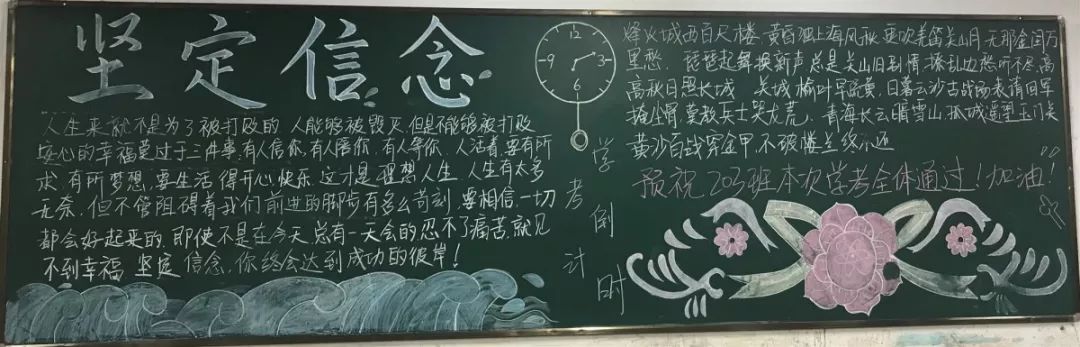 坚定信念
人生来就不是为了被打败的,人能够被毁灭,但是不能够被打败
安心的幸福莫过于三件事,有人信你,有人陪你,有人等你,人活着,要有所
求,有所梦想,要生活得开心快乐,这才是理想人生,人生有太多
无奈,但不管阻碍着我们前进的脚步有多么苛刻,要相信,一切
都会好起来的,即使不是在今天,总有一天会的,忍不了痛苦,就见
不到幸福,坚定信念,你终会达到成功的彼岸!
12
3
6
9
学考倒计时
烽火城西百尺楼,黄昏独上海风秋,更吹羌笛关山月,无那金闺万
里愁,琵琶起舞换新声,总是关山旧别情,撩乱边愁听不尽,高
高秋日照长城,关城榆叶早疏黄,日暮云沙古战场,表请回军
掩尘骨,莫教兵士哭龙荒,青海长云暗雪山,孤城遥望玉门关
黄沙百战穿金甲,不破楼兰终不还
预祝203班本次学考全体通过!加油!